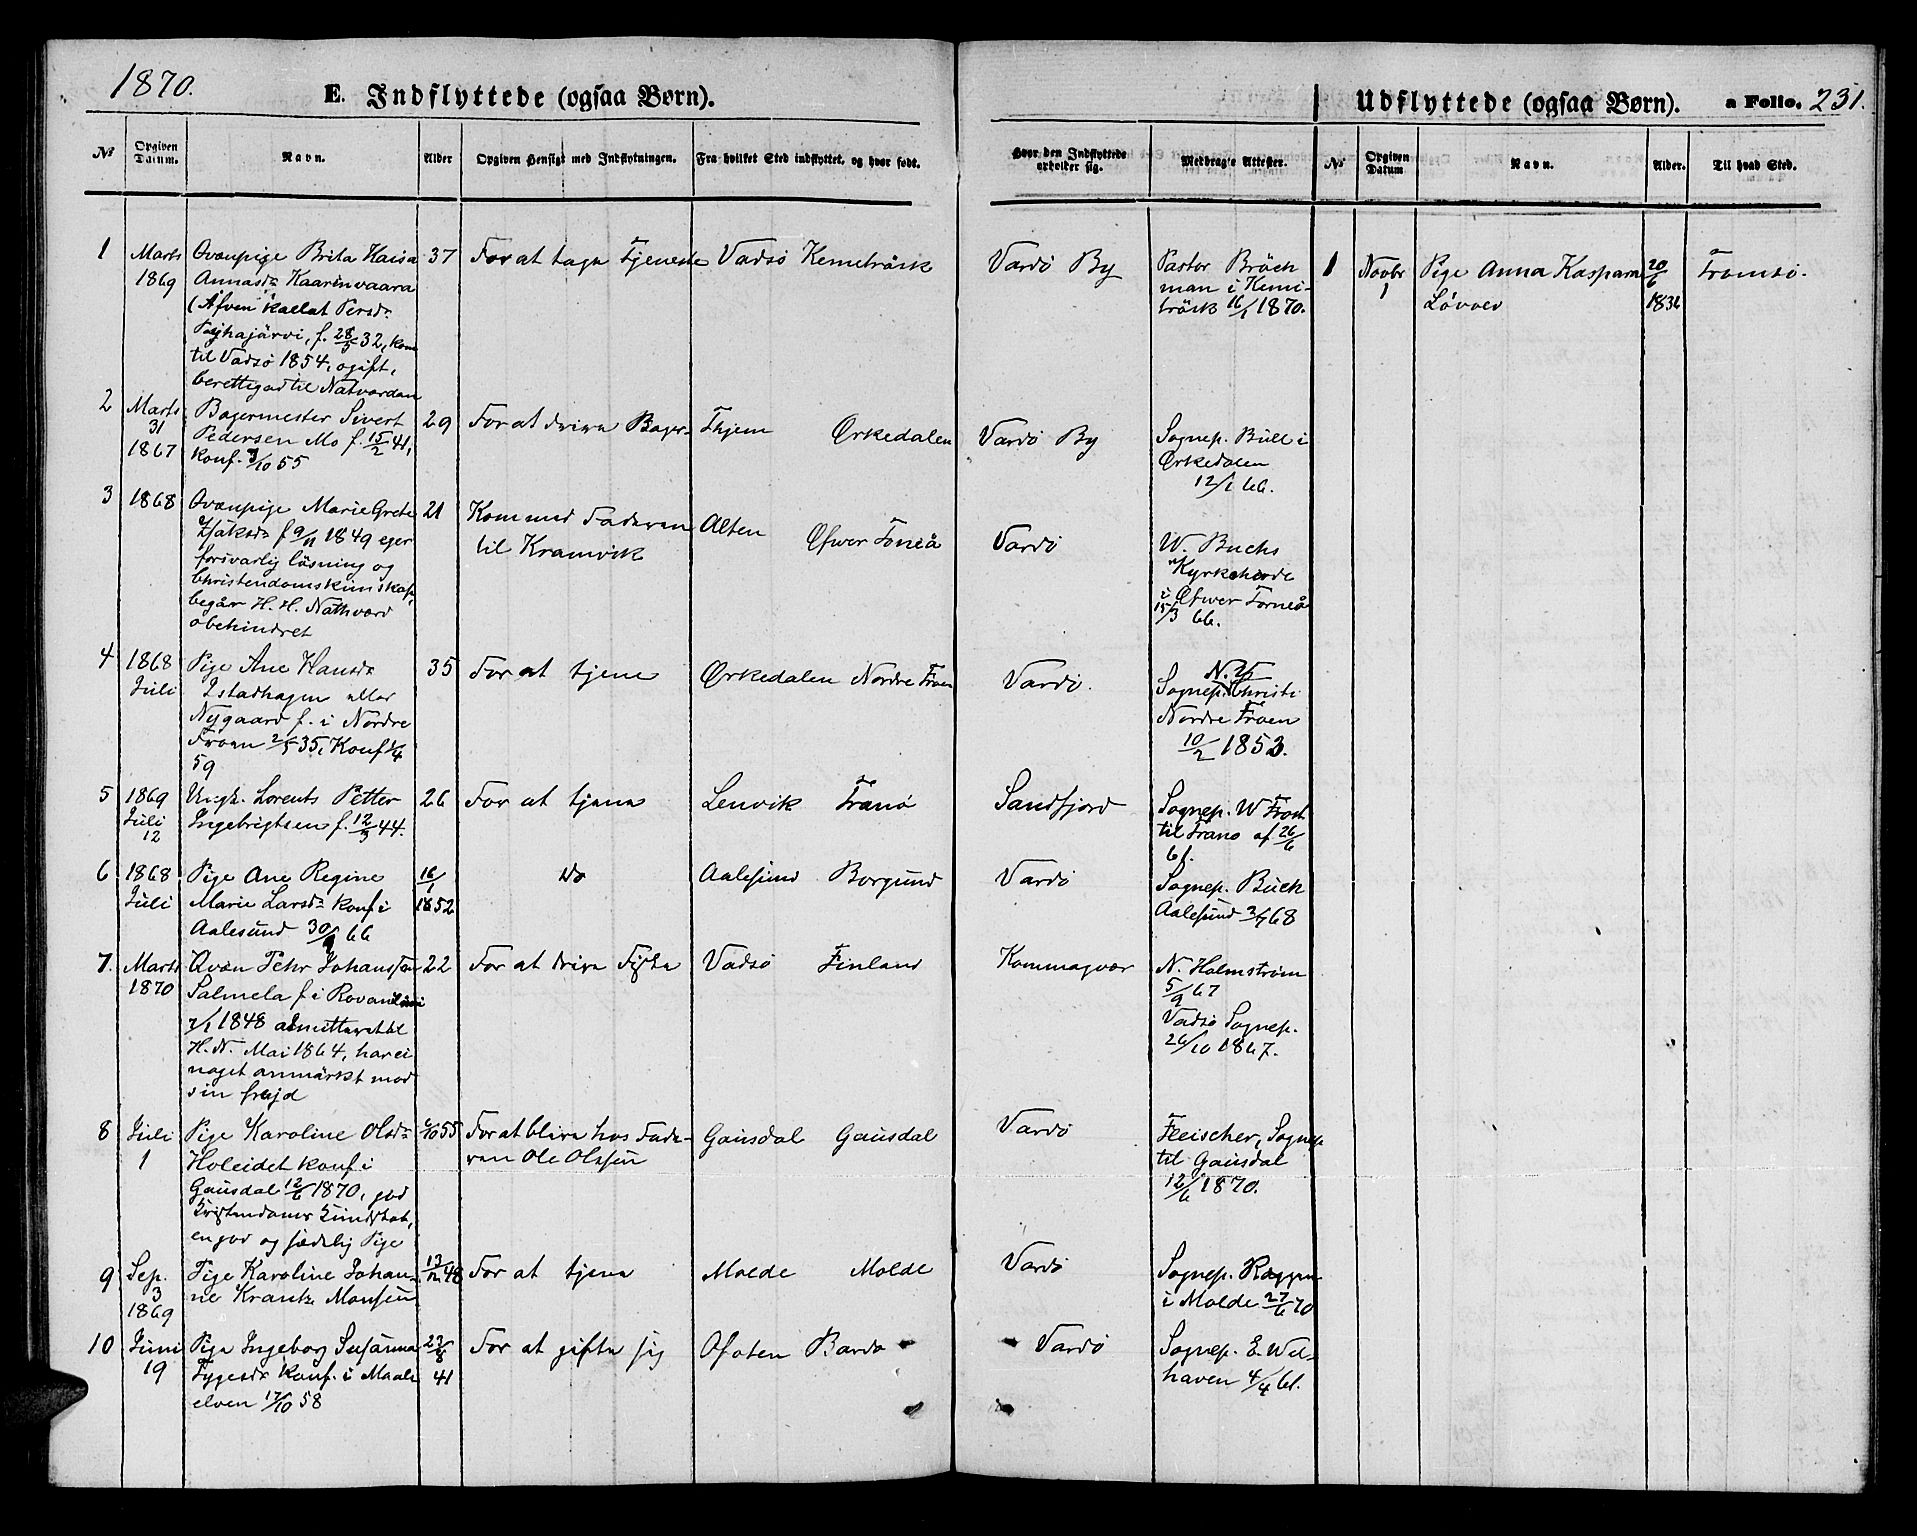 1870.
E. Indflyttede (ogsaa Børn).
No
Opgiven Datum.
Navn.
Alder
Opgiven Hensigt med Indflytningen.
Fra hvilket Sted indflyttet, og hvor født.
Hvor den Indflyttede opholder sig.
Medbragte Attester.
Udflyttede (ogsaa Børn).
a Folio. 231.
No
Opgiven Datum
Navn.
Alder.
Til hvad Sted.
1
Marts
1869
Qvænpige Brita Kaisa
Annasdr Kaarinvaara
(Äfven kallat Persdr
Pyhajärvi, f. 28/5 32, kom
til Vadsø 1854, ogift,
berettigad til Natvardan
37
For at tage Tjeneste
Vadsø Kemeträsk
Vardø By
Pastor Bräck
man i Kemi-
träsk 16/1 1870.
1
Novbr
1
Pige Anna Kaspara
Løvold
20/6
Tromsø.
2
Marts
31
1867
Bagermester Sivert
Pedersen Mo f. 15/2 41,
konf. 7/10 55
29
For at drive Bager-
Thjem Ørkedalen
Vardø By
Sognep. Bull i
Ørkedalen
12/1 66.
3
1868
Qvænpige Marie Grete
f 9/11 1849 eger
forsvarlig läsning og
Christendomskunskap,
begår H. H. Nathvard
obehindret
21
Kom med Faderen
til Kramvik
Alten Øfwer Torneå
Vardø
W. Buchs
Kyrkoherde
i Øfwer Torneå
15/3 66.
4
1868
Juli
Pige Ane Hansdr
Istadhagen eller
Nygaard f. i Nordre
Froen 2/5 35, Konf
59
35
For at tjene
Ørkedalen Nordre Froen
Vardø.
Sognep. Christi
Nordre Froen
10/2 1853.
5
1869
Juli
12
Ungk. Lorents Petter
Ingebrigtsen f. 12/3 44.
26
For at tjene
Lenvik Tranø
Sandfjord
Sognep. W Frost
til Tranø af 26/6
61.
6
1868
Juli
Pige Ane Regine
Marie Larsdr konf i
Aalesund 30/9 66
16/1
1852
Do
Aalesund Borgund
Vardø
Sognep. Buck
Aalesund 3/7 68
7.
Marts
1870
Qvæn Pehr Johanssen
Salmela f i Rovaniemi
7/1 1848 admitteret til
H. N. Mai 1864, har ei
noget anmärkt mod
sin frejd
22
For at drive Fiske
Vadsø Finland
Kommagvær
N. Holmstrøm
5/9 67
Vadsø Sognep.
26/10 1867.
8
Juli
1
Pige Karoline Olsdr
Holeidet konf i
Gausdal 12/6 1870, god
Kristendoms Kundskab,
en god og sædelig Pige
6/10 55
For at blive hos Fade-
ren Ole Olssen
Gausdal Gausdal
Vardø
Fleischer, Sognep
til Gausdal
12/6 1870.
9
Sep.
3
1869
Pige Karoline Johan-
ne Krantz Monsen
13/12 48
For at tjene
Molde Molde
Vardø
Sognep. Koggen
i Molde 27/6 70
10
Juni
19
Pige Ingeborg Susanna
Tygesdr konf. i Maals
elven 17/10 58
23/8
41
For at gifte sig
Ofoten Bardo
Vardø
Sognep. E. Wel-
haven 4/4 61.